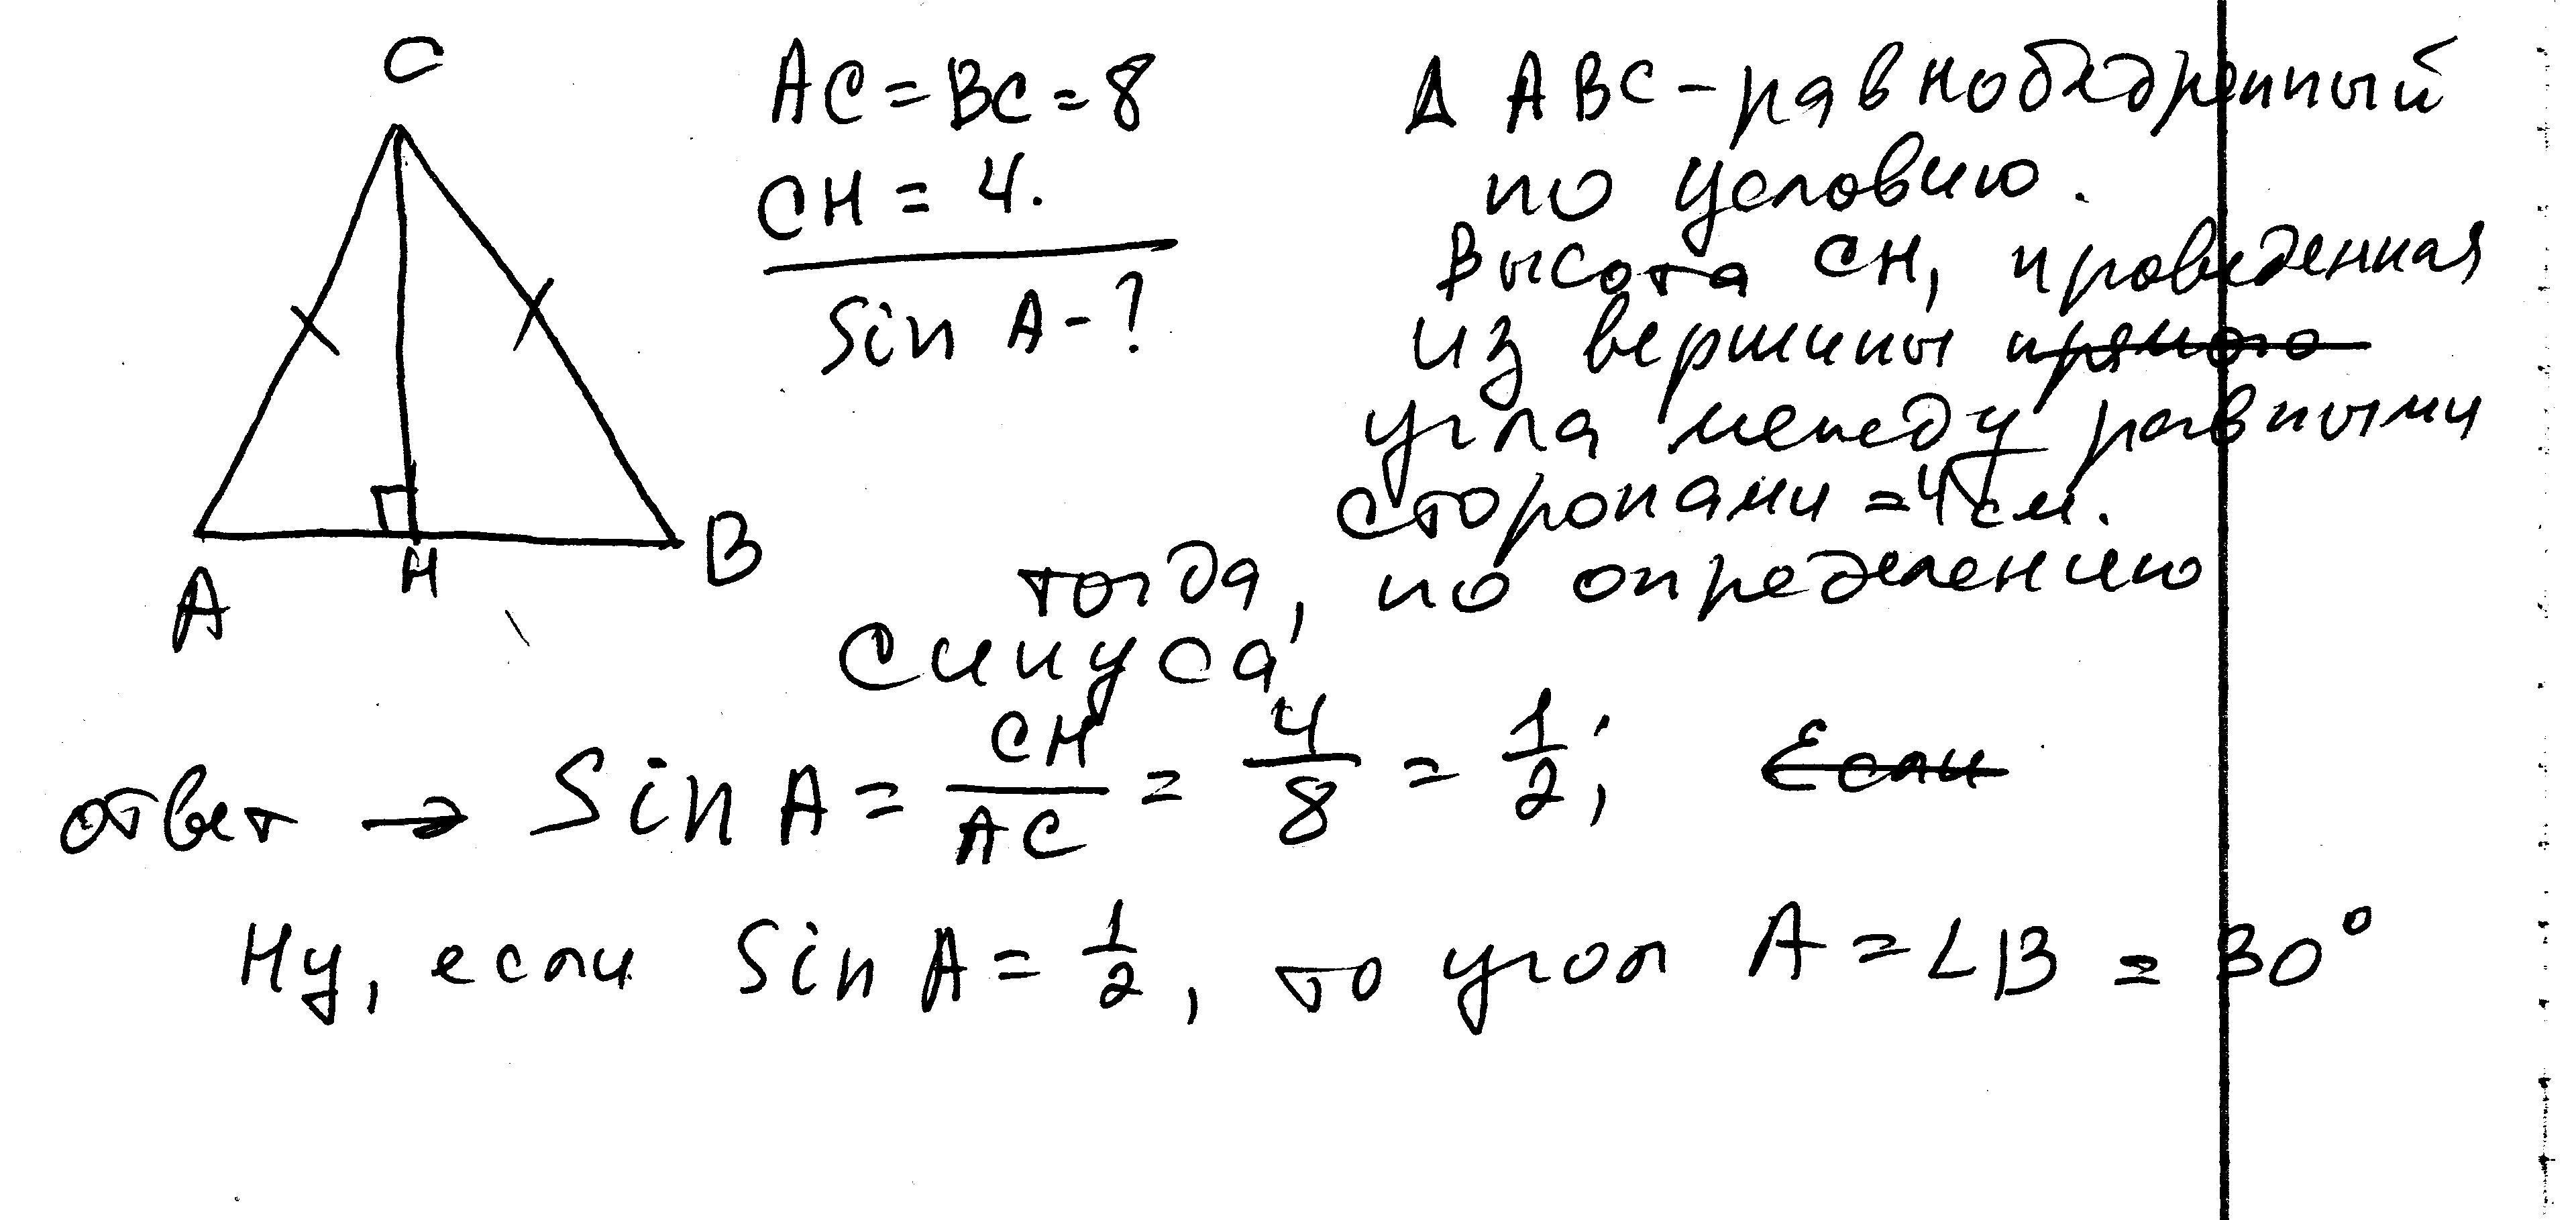 C
A
H
B
AC = BC = 8
CH = 4.
Sin A - ?
Δ ABC - равнобедренный
по условию.
Высота CH, проведенная
из вершины прямого
угла между равными
сторонами = 4 см.
тогда, по определению
синуса
ответ → Sin A = CH/AC = 4/8 = 1/2; Если
Ну, если Sin A = 1/2, то угол A = ∠B = 30°